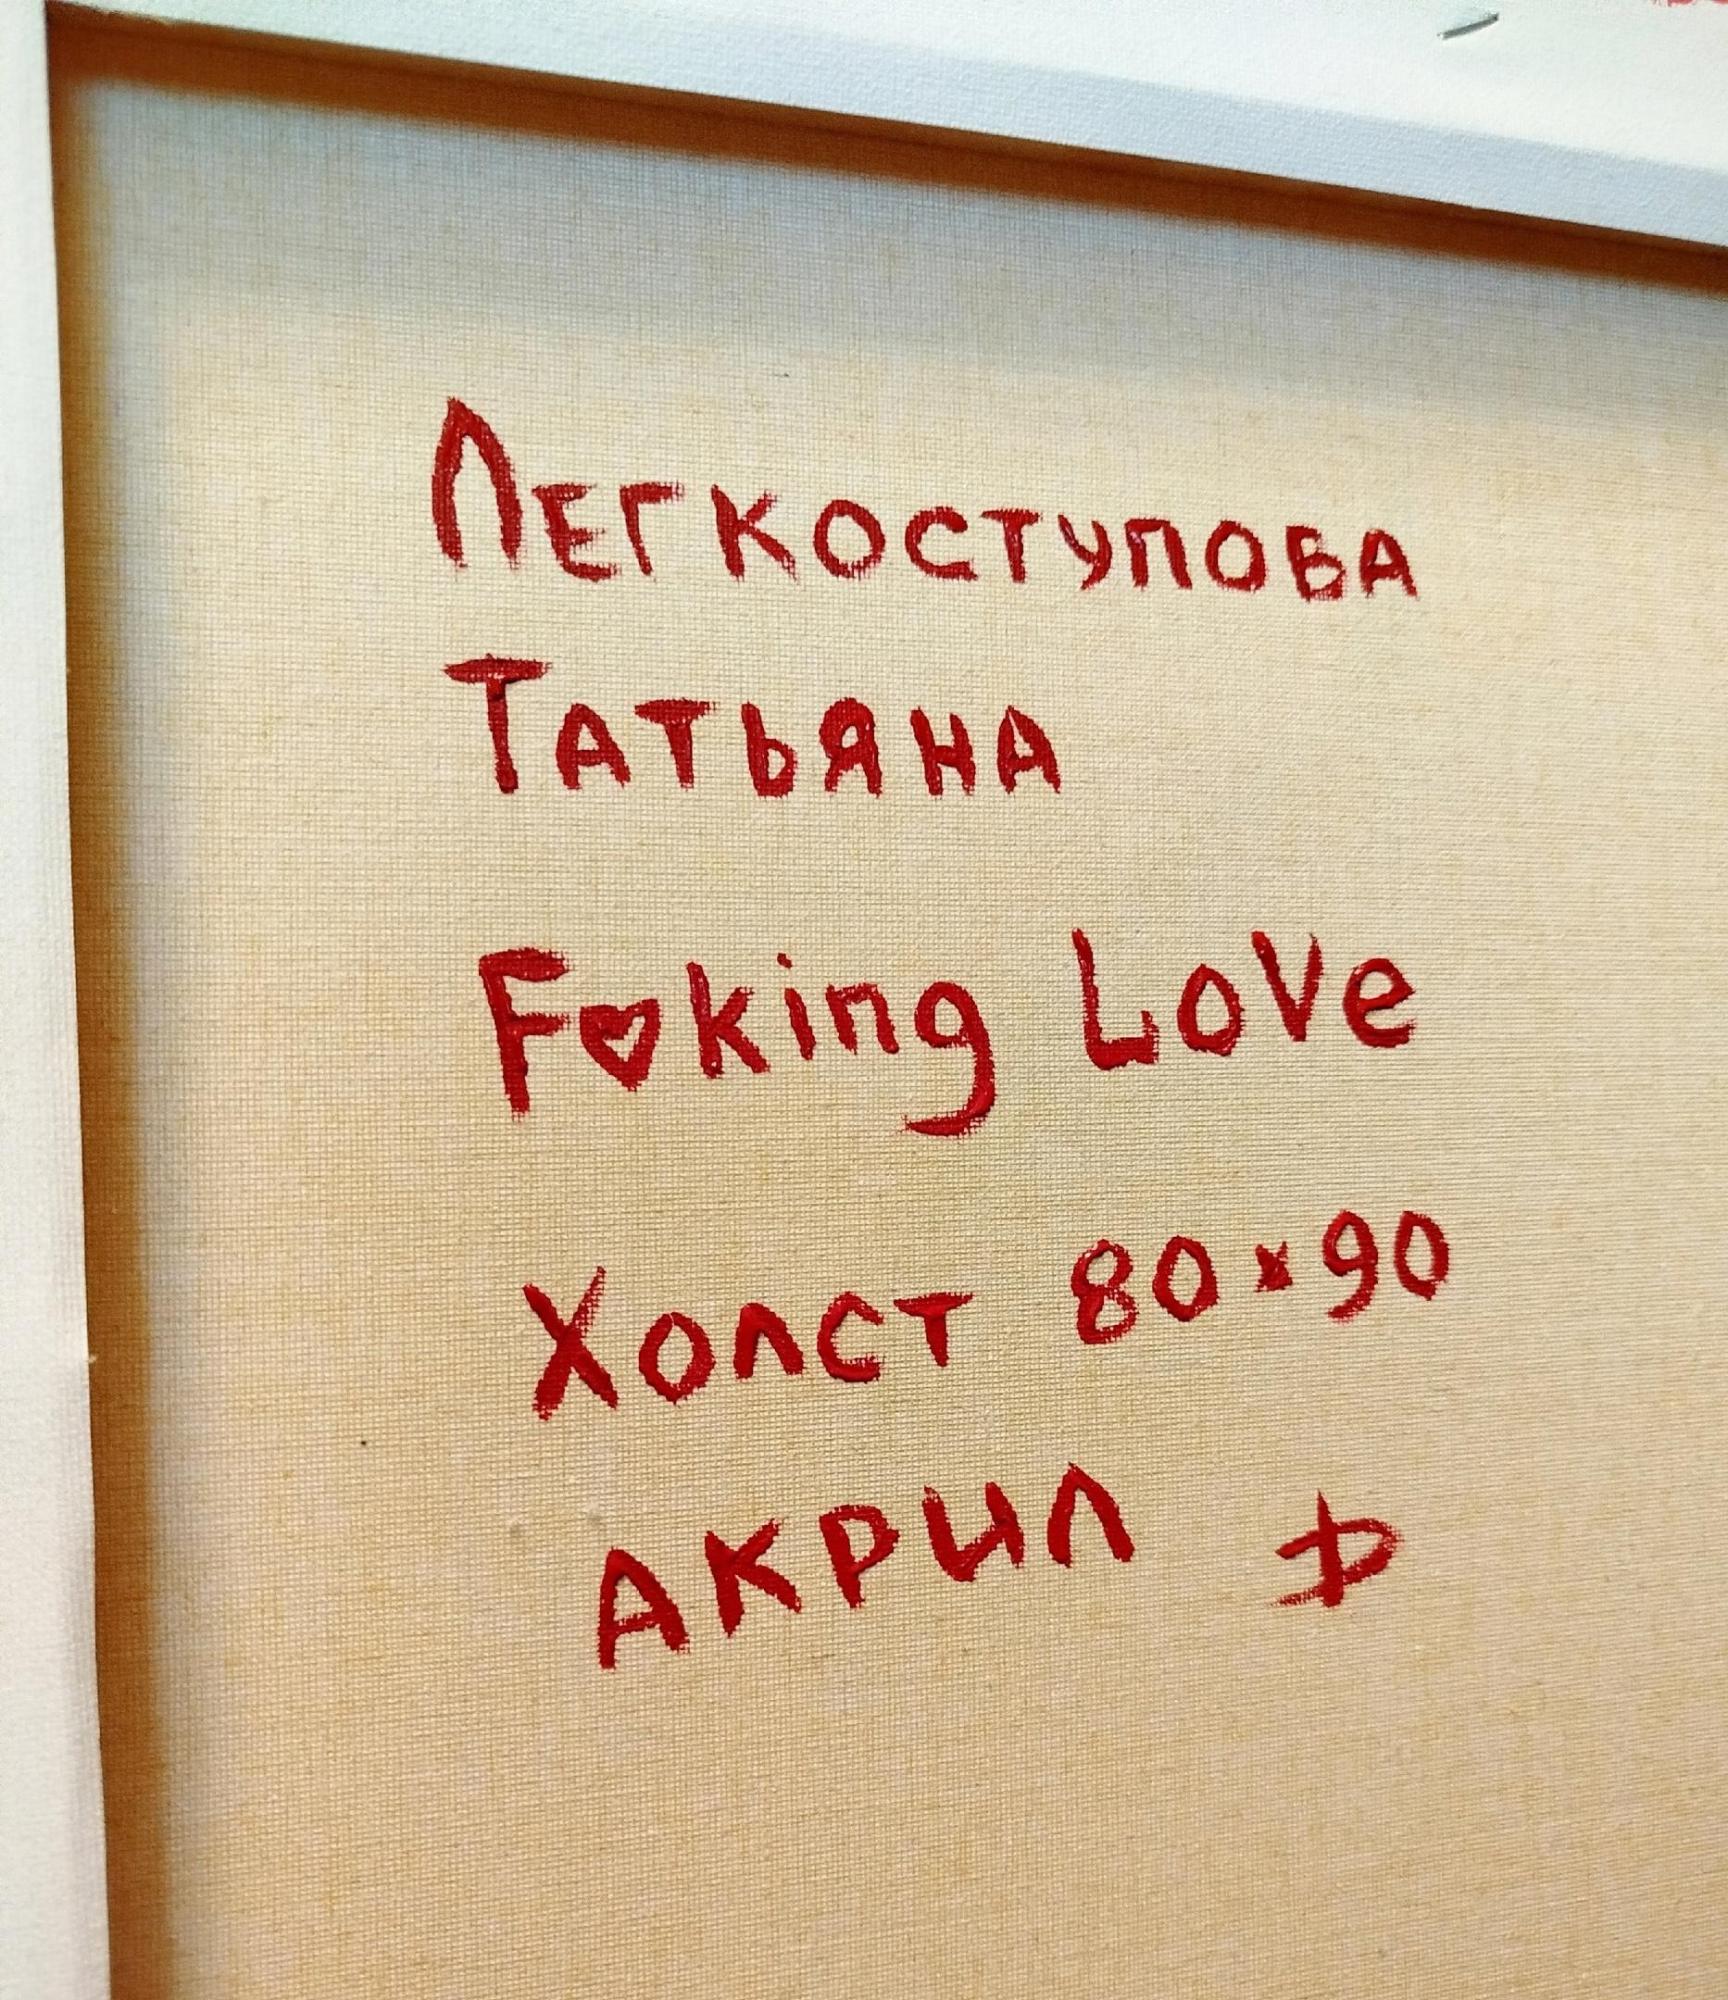 Легкоступова
Татьяна
F♥king Love
Холст 80×90
Акрил